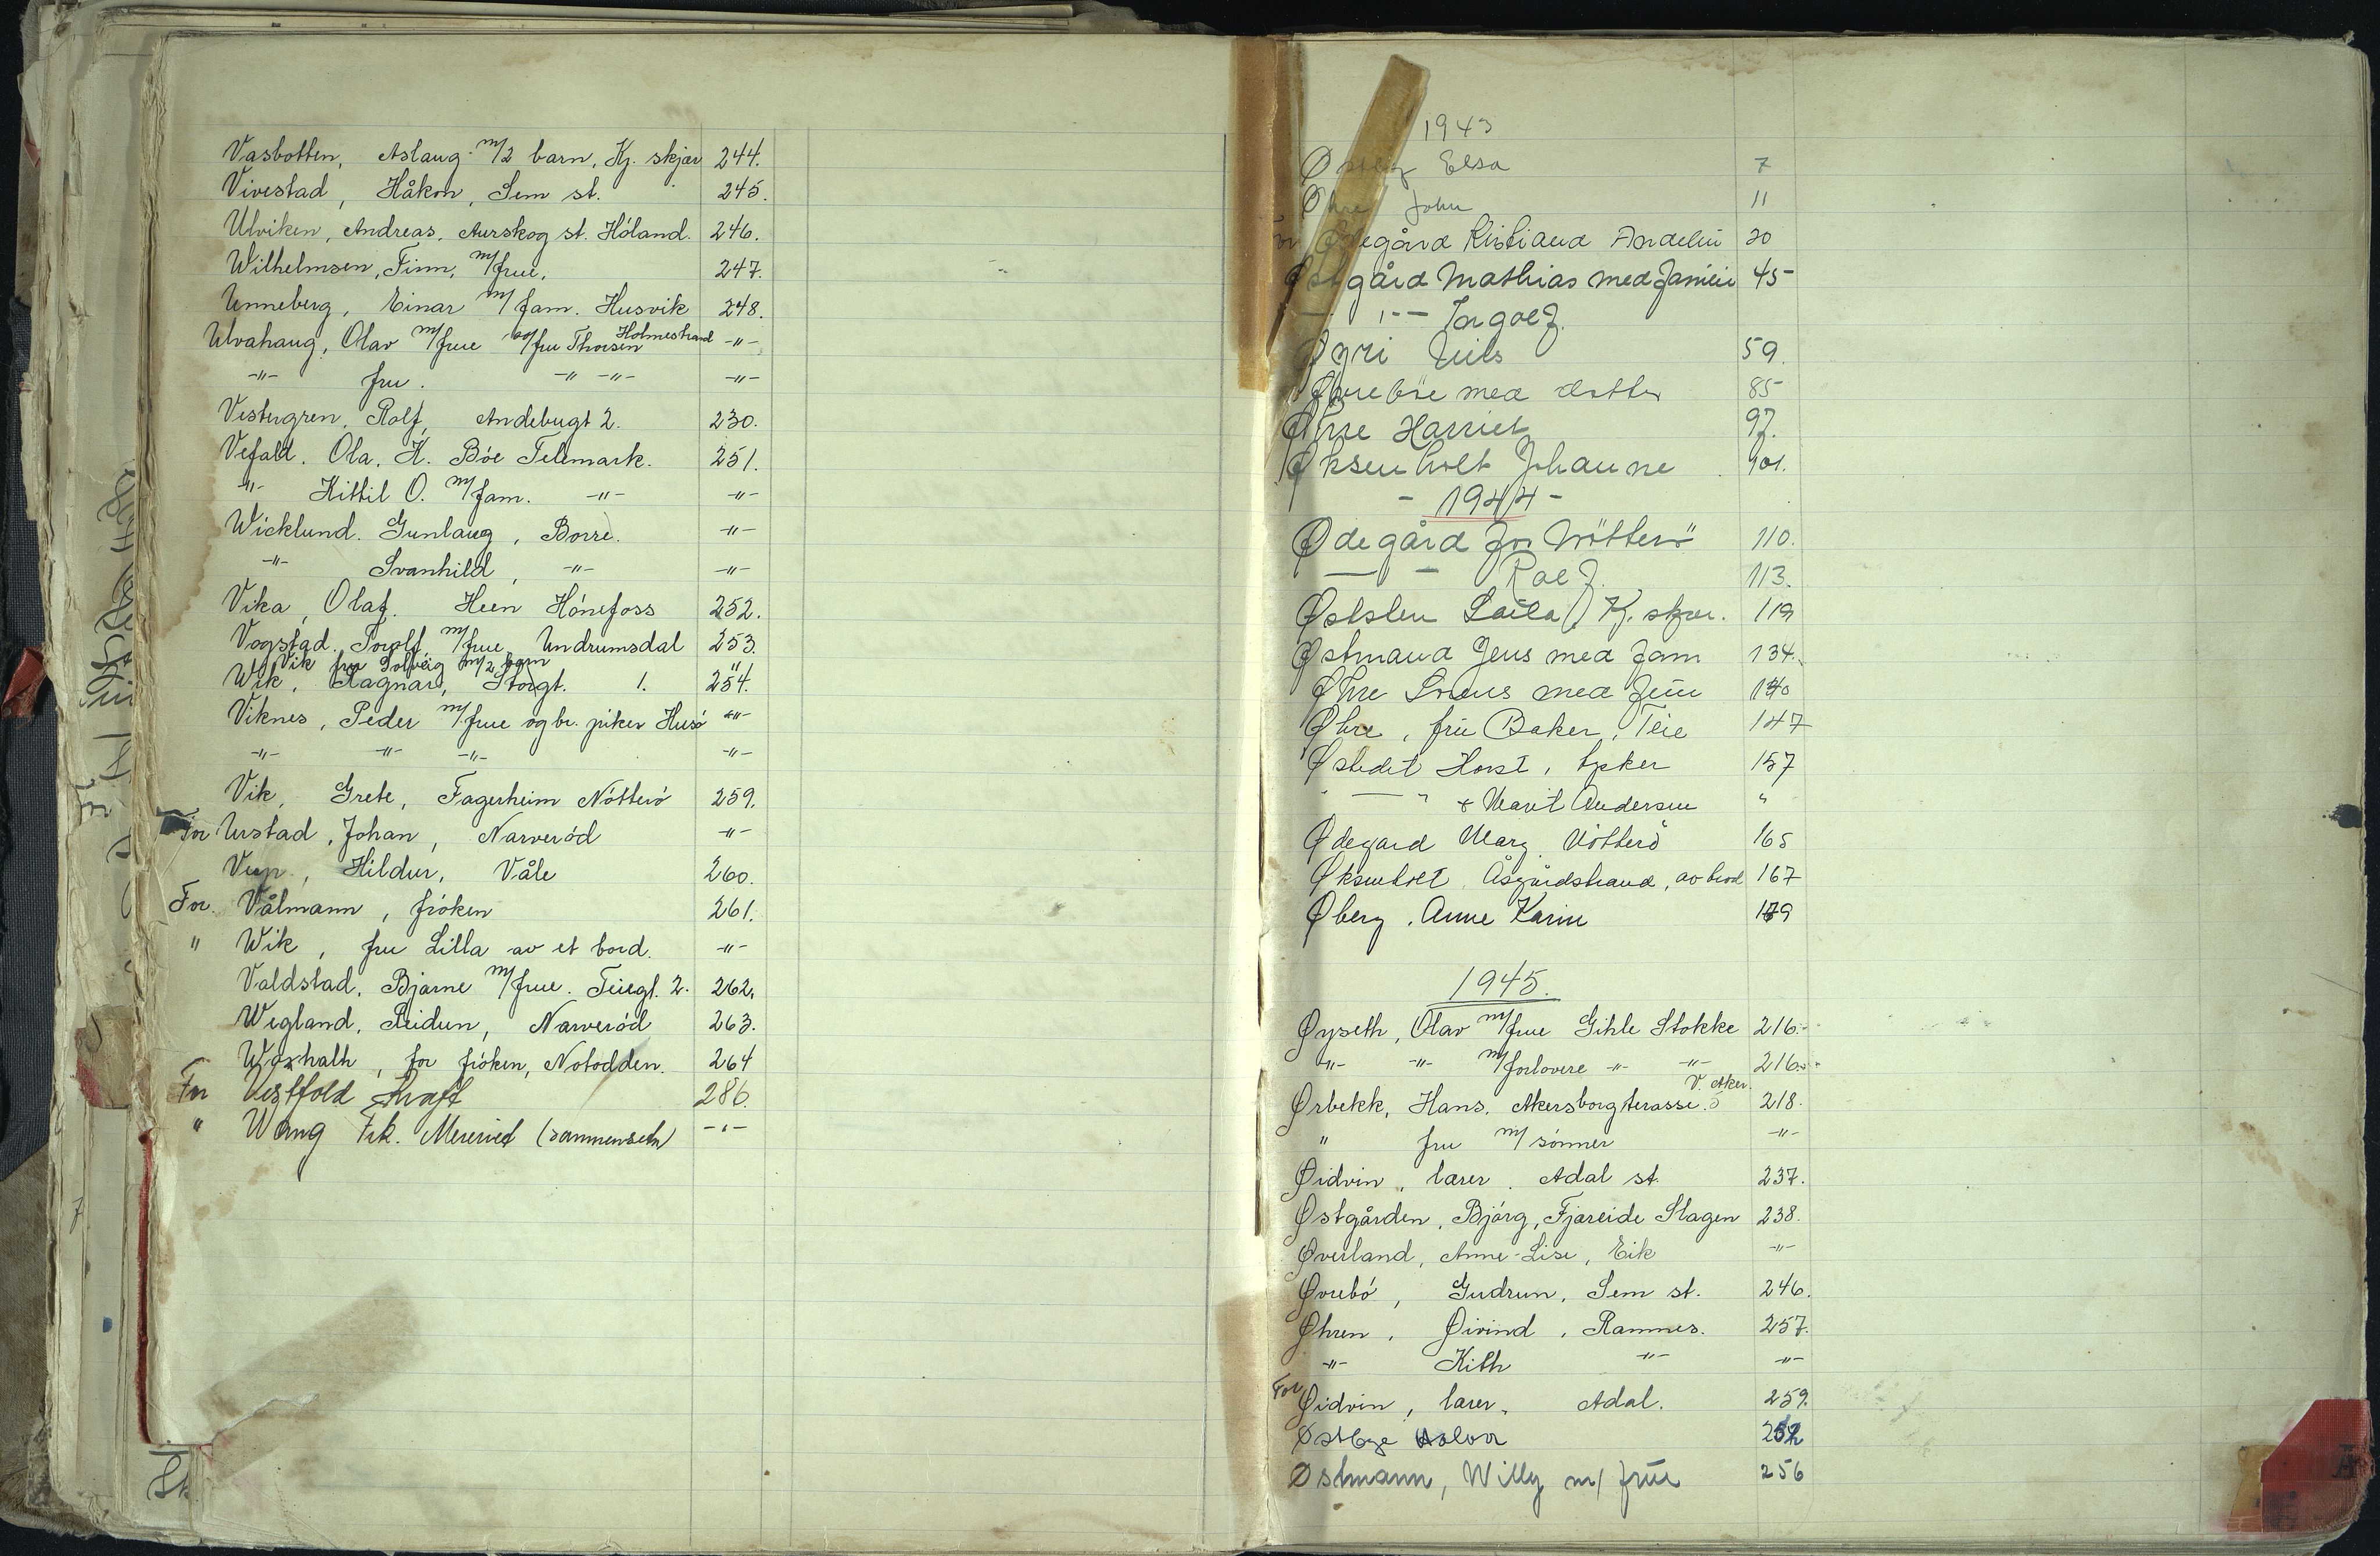 Vasbotten, Aslaug m/2 barn, Kj. skjær 244.
Vivestad, Håkon, Sem st. 245.
Ulviken, Andreas, Aurskog st. Höland. 246.
Wilhelmsen, Finn, m/frue. 247.
Unneberg, Einar m/fam. Husvik 248.
Ulvahaug, Olav m/frue og/fru Thorsen Holmestrand -"-
-"- fru. -"- -"- -"-
Vestergren, Rolf, Andebugt 2. 230.
Vefald. Ola. K. Böe Telemark. 251.
-"- Kittil O. m/fam. -"- -"-
Wicklund. Gunlaug, Borre. -"-
-"- Svanhild, -"- -"-
Vika, Olaf. Heen Hönefoss 252.
Vogstad. Torolf, m/frue Undrumsdal 253.
Vik fru Solveig m/2 barn "
Wik, Ragnar, Storgt. 1. 254.
Viknes, Peder m/frue og br. piker Husö -"-
-"- -"- -"- -"-
Vik, Grete, Fagerheim Nötterö 259.
For Urstad, Johan, Narveröd -"-
Hildur, Våle 260.
For Vålmann, fröken 261.
" Wik, fru Lilla av et bord. -"-
Valdstad, Bjarne m/frue. Teiegt. 2. 262.
Wegland, Reidun, Narveröd 263.
for fröken, Notodden. 264
For Vestfold Kraft 286.
" Wang Frk. (sammensetn) -"-
1943
Elsa 7
Øhre John 11
For Ødegård 20
Østgård Mathias med familie 45
-"- Ingolf.
Nils 59.
med datter 85
Øhre Harriet 97.
Øksenholt Johanne 101.
- 1944 -
Ødegård for Nötterö 110.
— - Rolf. 113.
Østslen Laila, Kj. skjær. 119
Østmand Jens med fam 134.
Øhre med frue 140
Øhre, frü Baker, Teie 147
Horst, tysker 157
" — " + Marit Andersen "
Ødegard Marg. Nötterö 165
Øksenholt, Åsgårdstrand, av bord 167
Øberg, Anne Karin 179
1945.
Øyseth, Olav m/frue Gihle Stokke 216.-
-"- -"- m/forlovere -"- -"- 216.-
Ørbekk, Hans. Akersborgterasse. 5 V. Aker. 218.
" fru m/sönner -"-
Øidvin, lærer, Adal st. 237.
Østgården, Bjørg, Fjæreide Slagen 238.
Øverland, Anne-Lise, Eik -"-
Ørebö, Gudrun, Sem st. 246.
Øhren, Øivind, Ramnes. 257.
-"- Kith -"- -"-
For Øidvin, lærer, Adal. 259.
Østbye Halvor 252
Østmann, Willy m/ früe 256